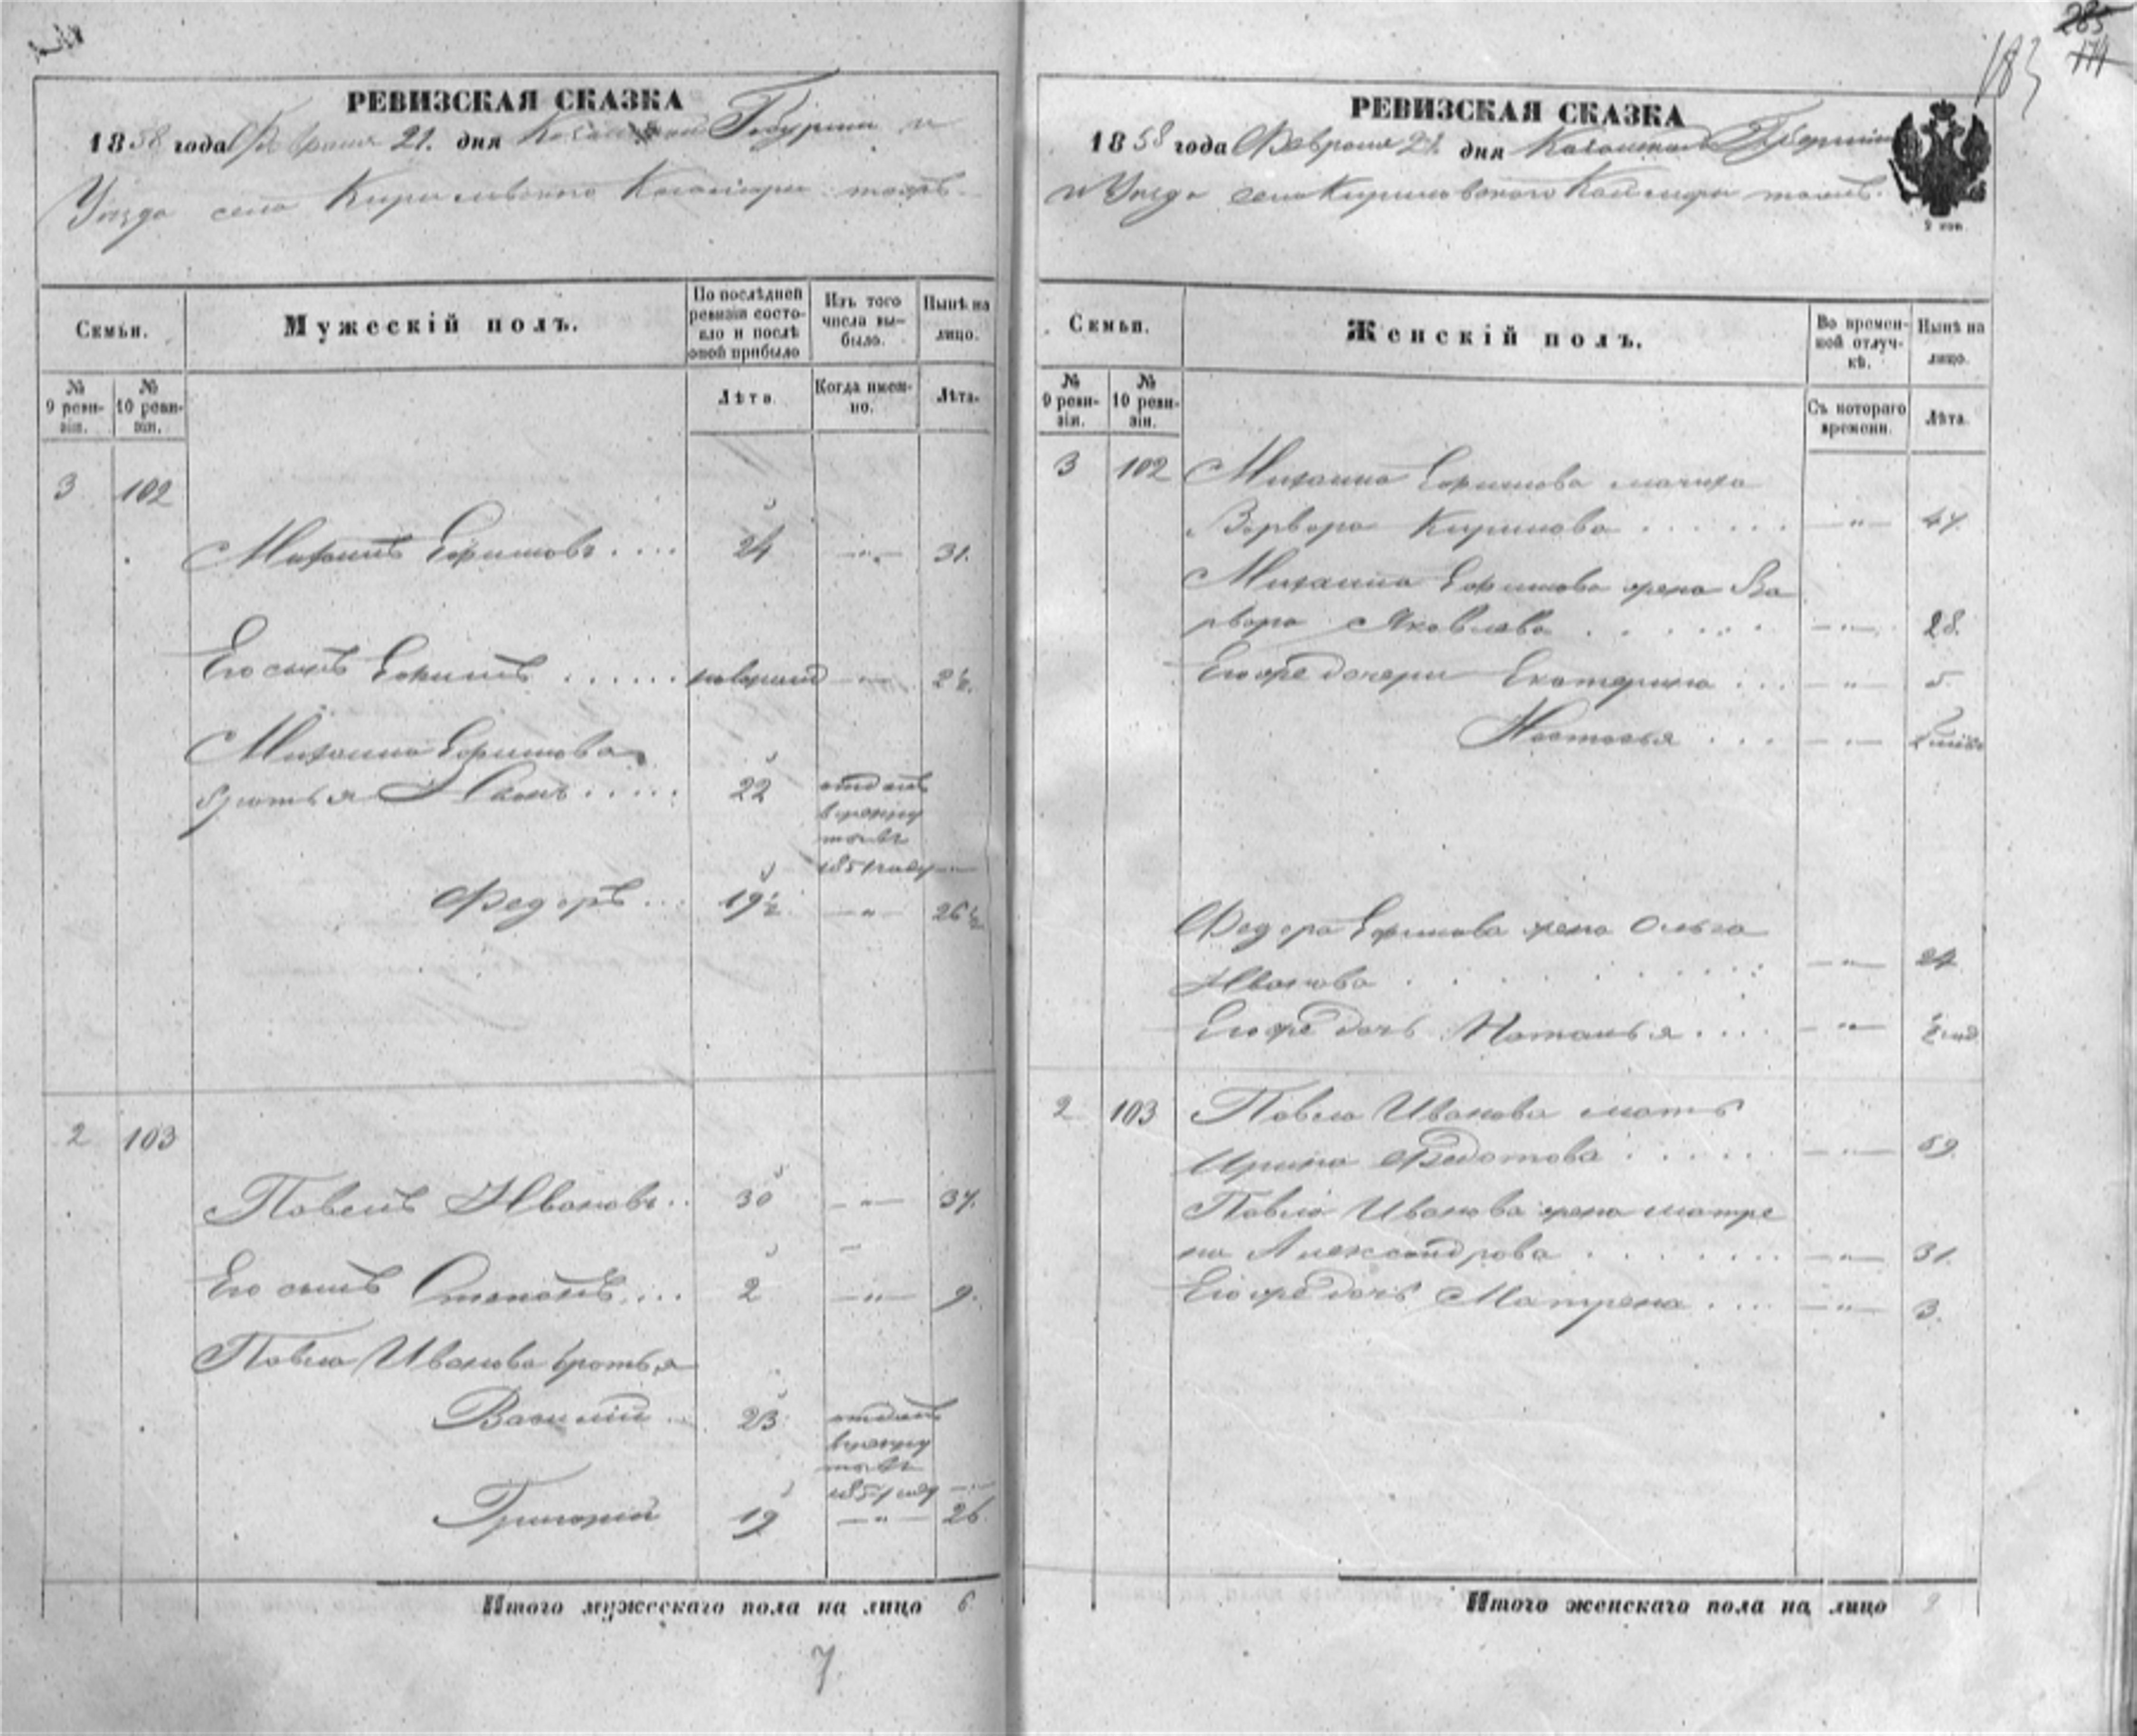 РЕВИЗСКАЯ СКАЗКА
1858 года Февраля 21. дня Казанской Губернии и
Уезда села Кириловского Каймары тожъ
Семьи.
Мужескій полъ.
По послѣдней ревизіи состояло и послѣ оной прибыло
Изъ того числа выбыло.
Нынѣ на лицо.
№ 9 ревизіи.
№ 10 ревизіи.
Лѣта
Когда именно.
Лѣта.
3 102
Михаилъ Ефимовъ .... 24 —"— 31.
Его сынъ Ефимъ ...... —"— 2½.
Михаила Ефимова
братья Иванъ ..... 22 отданъ
в рекру
ты въ
1851 году —
Федоръ ... 19½ —"— 26½
2 103
Павелъ Ивановъ .. 30 —"— 37.
Его сынъ Степанъ ... 2 —"— 9.
Павла Иванова братья
Василій .. 23 отданъ
в рекру
ты въ
1851 году —
Григорій 19 —"— 26.
Итого мужескаго пола на лицо 6
7
285
174
183
РЕВИЗСКАЯ СКАЗКА
1858 года Февраля 21. дня Казанской Губерніи
и Уезда села Кириловского Каймары тожъ.
Семьи.
Женскій полъ.
Во временной отлучкѣ.
Нынѣ на лицо.
№ 9 ревизіи.
№ 10 ревизіи.
Съ котораго времени.
Лѣта.
3 102 Михаила Ефимова мачиха
Варвара Кирилова ...... —"— 47.
Михаила Ефимова жена Ва
рвара Яковлева ...... —"— 28.
Его же дочери Екатерина ... —"— 5.
Настасья .... —"—
Федора Ефимова жена Ольга
Иванова ........ —"— 24
Его же дочь Наталья .... —"—
2 103 Павла Иванова мать
Ирина Федотова ...... —"— 59.
Павла Иванова жена Матре
на Александрова ...... —"— 31.
Его же дочь Матрена .... —"— 3.
Итого женскаго пола на лицо 9